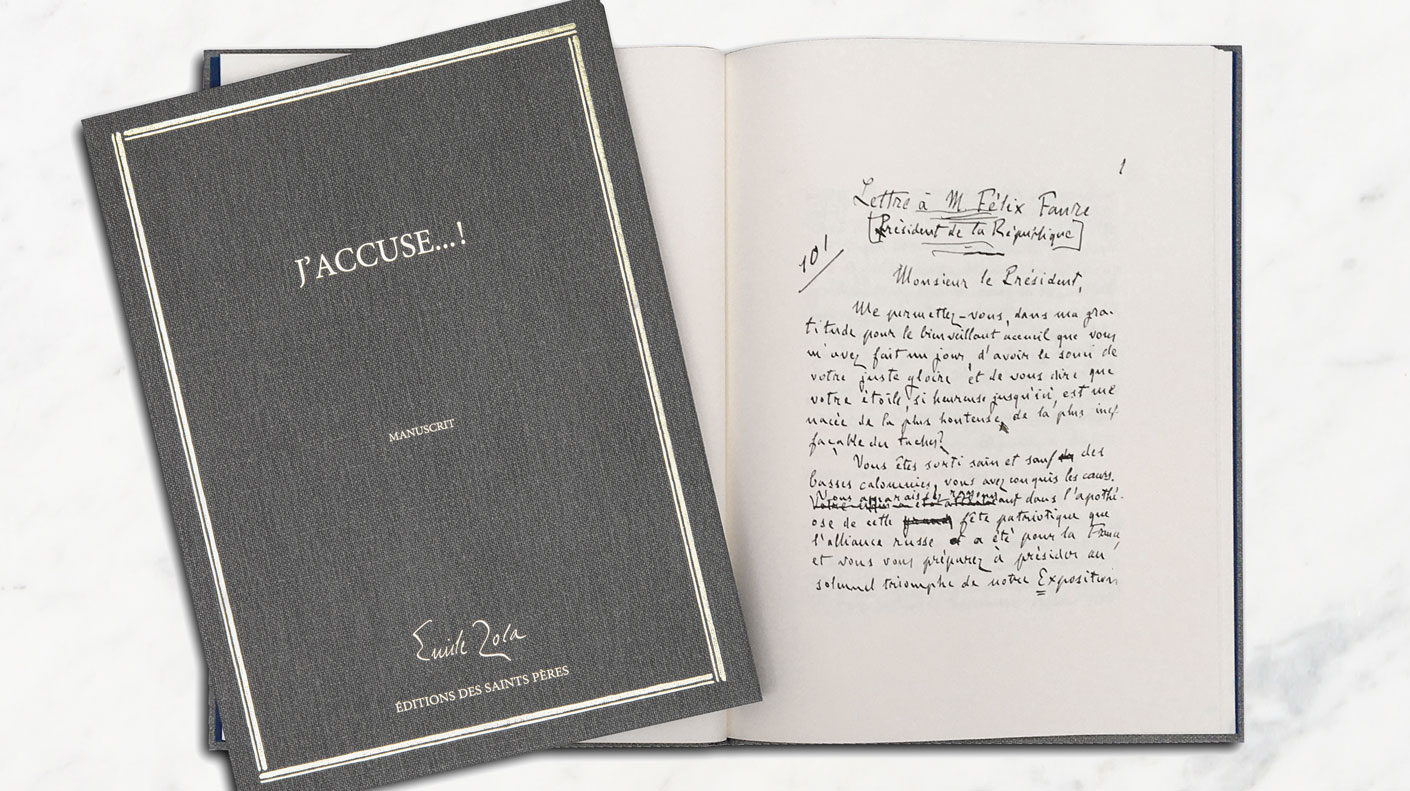 J'ACCUSE...!
MANUSCRIT
Émile Zola
ÉDITIONS DES SAINTS PÈRES
1
Lettre à M. Félix Faure
[Président de la République]
10'
Monsieur le Président,
Me permettez-vous, dans ma gra-
titude pour le bienveillant accueil que vous
m'avez fait un jour, d'avoir le souci de
votre juste gloire et de vous dire que
votre étoile, si heureuse jusqu'ici, est me
nacée de la plus honteuse, de la plus inef
façable des taches?
Vous êtes sorti sain et sauf des
basses calomnies, vous avez conquis les cœurs.
Vous apparaissez dans l'apothé-
ose de cette fête patriotique que
l'alliance russe a été pour la France,
et vous vous préparez à présider au
solennel triomphe de notre Exposition